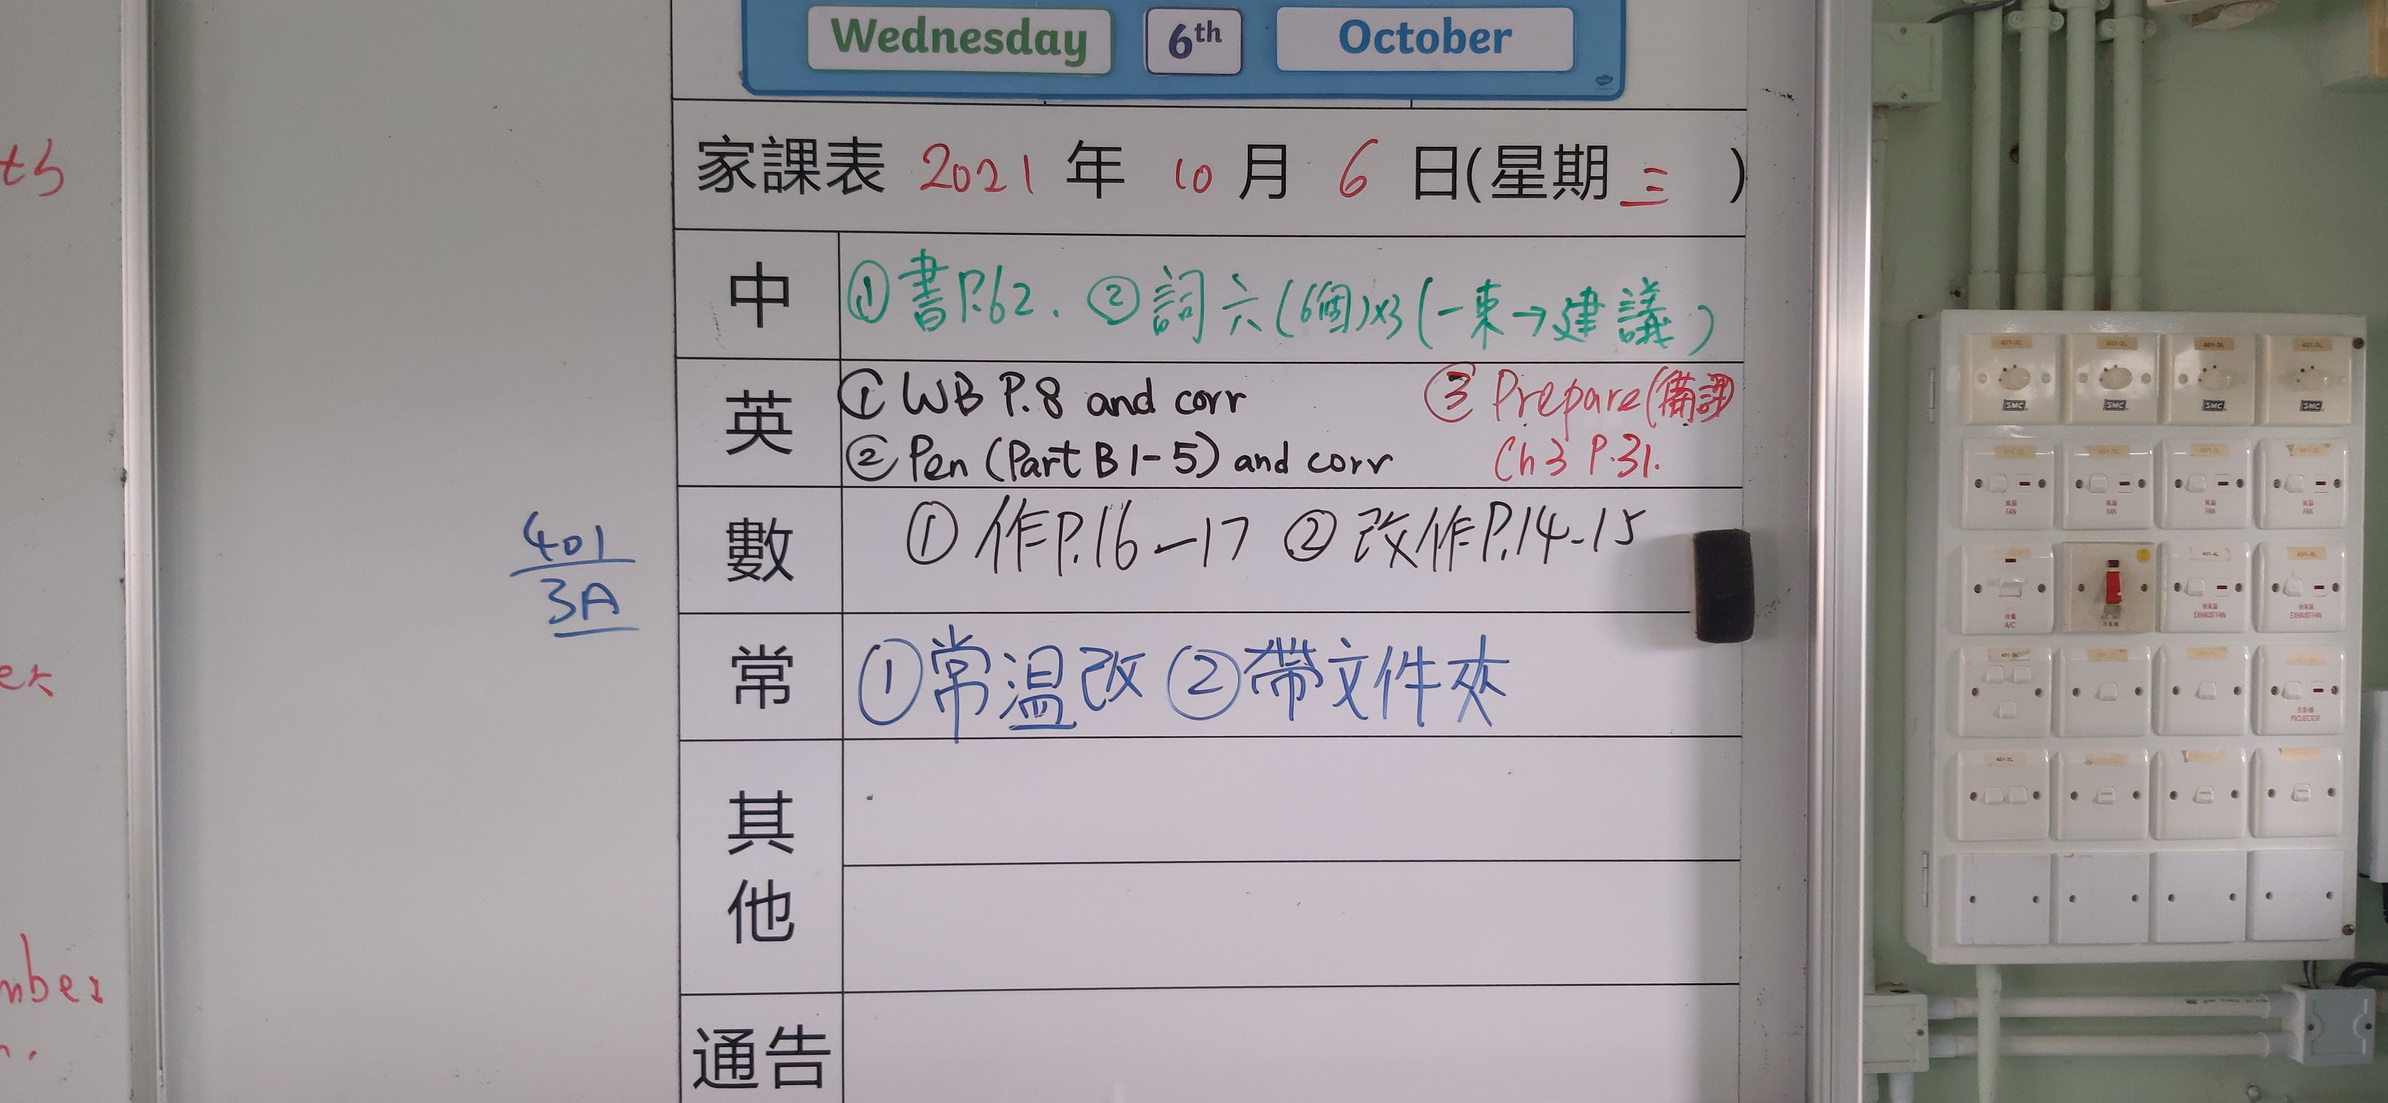 Wednesday 6th October
家課表 2021 年 10 月 6 日(星期 三 )
中 ①書P.62. ②詞六(6個)x3(一束→建議)
英 ① WB P.8 and corr ③ Prepare(備課
② Pen (Part B 1-5) and corr Ch3 P.31.
數 ① 作P.16-17 ② 改作P.14-15
常 ①常溫改 ②帶文件夾
其他
通告
401
3A
th
er
mber
SMC SMC SMC SMC
FAN FAN FAN FAN
A/C EXHAUST FAN EXHAUST FAN
PROJECTOR